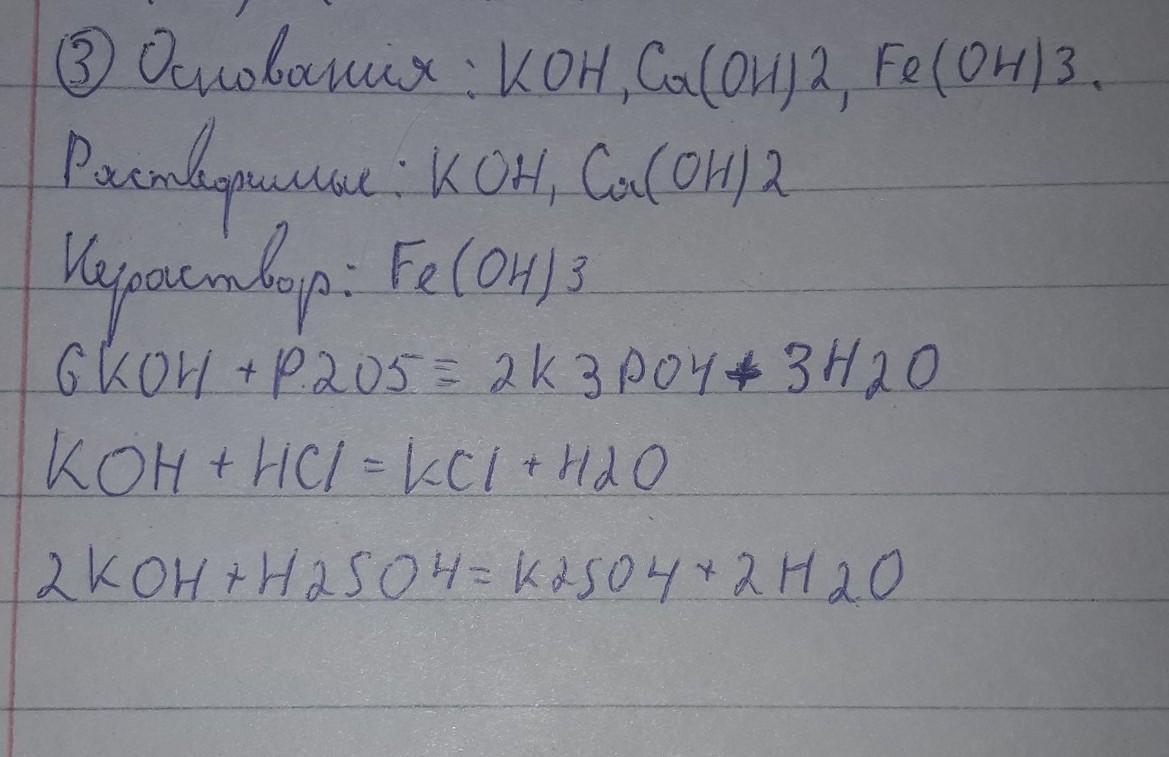 ③ Основания: KOH, Ca(OH)2, Fe(OH)3.
Растворимые: KOH, Ca(OH)2
Нераствор: Fe(OH)3
6KOH + P2O5 = 2K3PO4 + 3H2O
KOH + HCl = KCl + H2O
2KOH + H2SO4 = K2SO4 + 2H2O